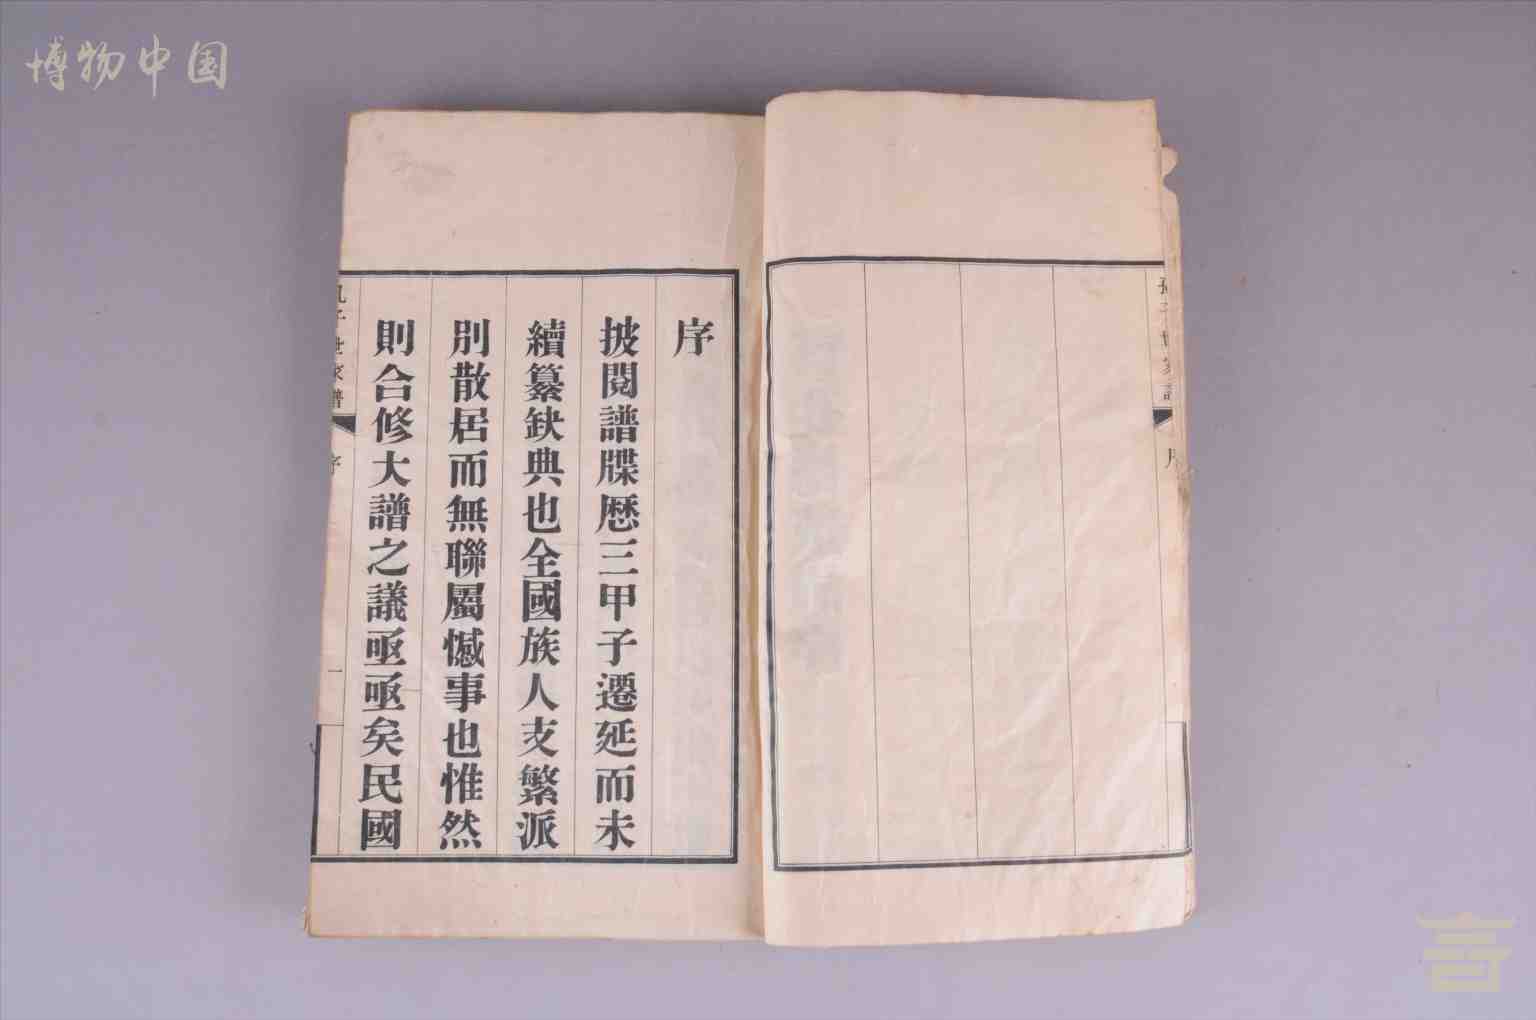 博物中国
序
披閱譜牒歷三甲子遷延而未
續纂缺典也全國族人支繁派
別散居而無聯屬憾事也惟然
則合修大譜之議亟亟矣民國
孔子世家譜
序
一
子世家